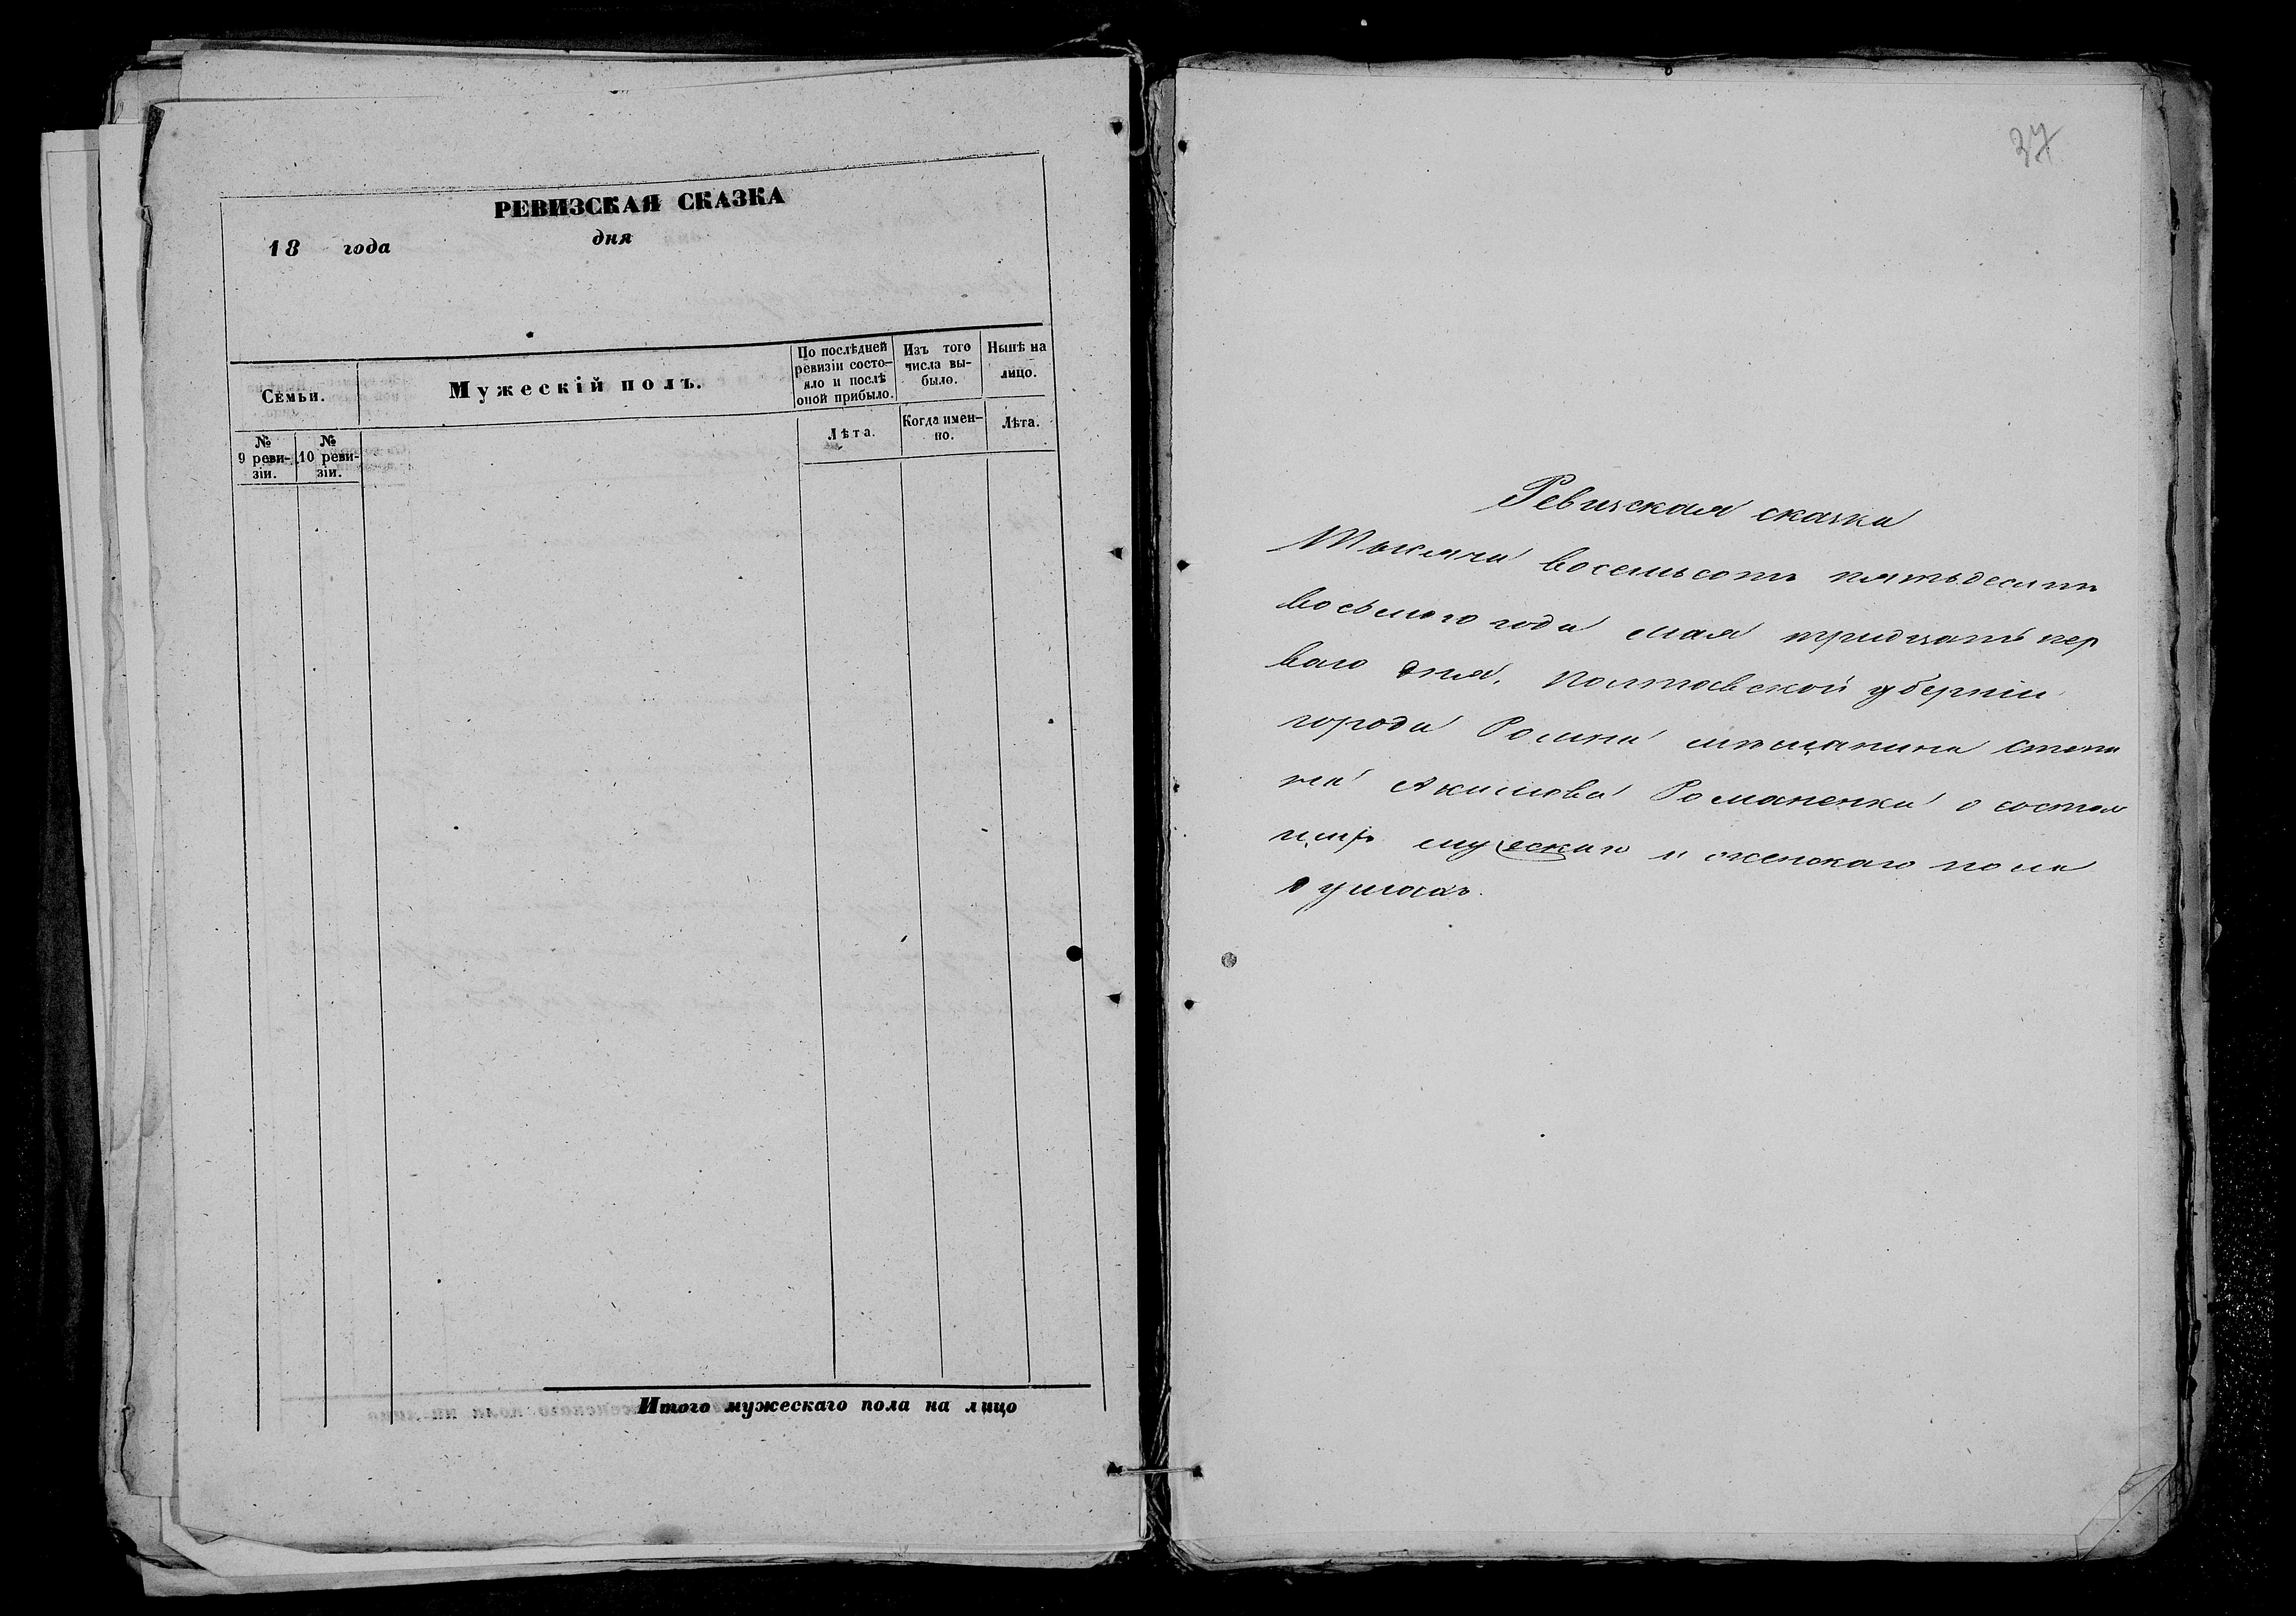 РЕВИЗСКАЯ СКАЗКА
18 года дня
Семьи.
Мужескій полъ.
По послѣдней
ревизіи состо-
яло и послѣ
оной прибыло.
Изъ того
числа вы-
было.
Нынѣ на
лицо.
№
9 реви-
зіи.
№
10 реви-
зіи.
Лѣта.
Когда имен-
но.
Лѣта.
Итого мужескаго пола на лицо
37
Ревизская сказка
Тысяча восемьсотъ пятьдесятъ
восьмого года мая тридцать пер
ваго дня, Полтавской губерніи
города Ромна мѣщанина Степа
на Акимова Романенка о состоя
щихъ мужескаго и женскаго пола
душахъ.